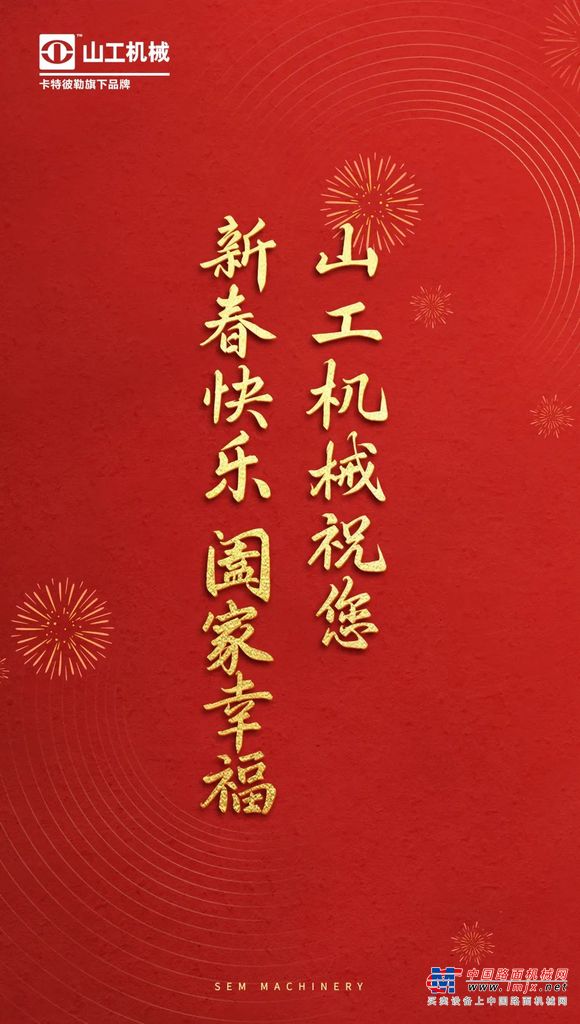 山工机械
™
卡特彼勒旗下品牌
山工机械祝您
新春快乐 阖家幸福
SEM MACHINERY
中国路面机械网
www.lmjx.net
买卖设备上中国路面机械网